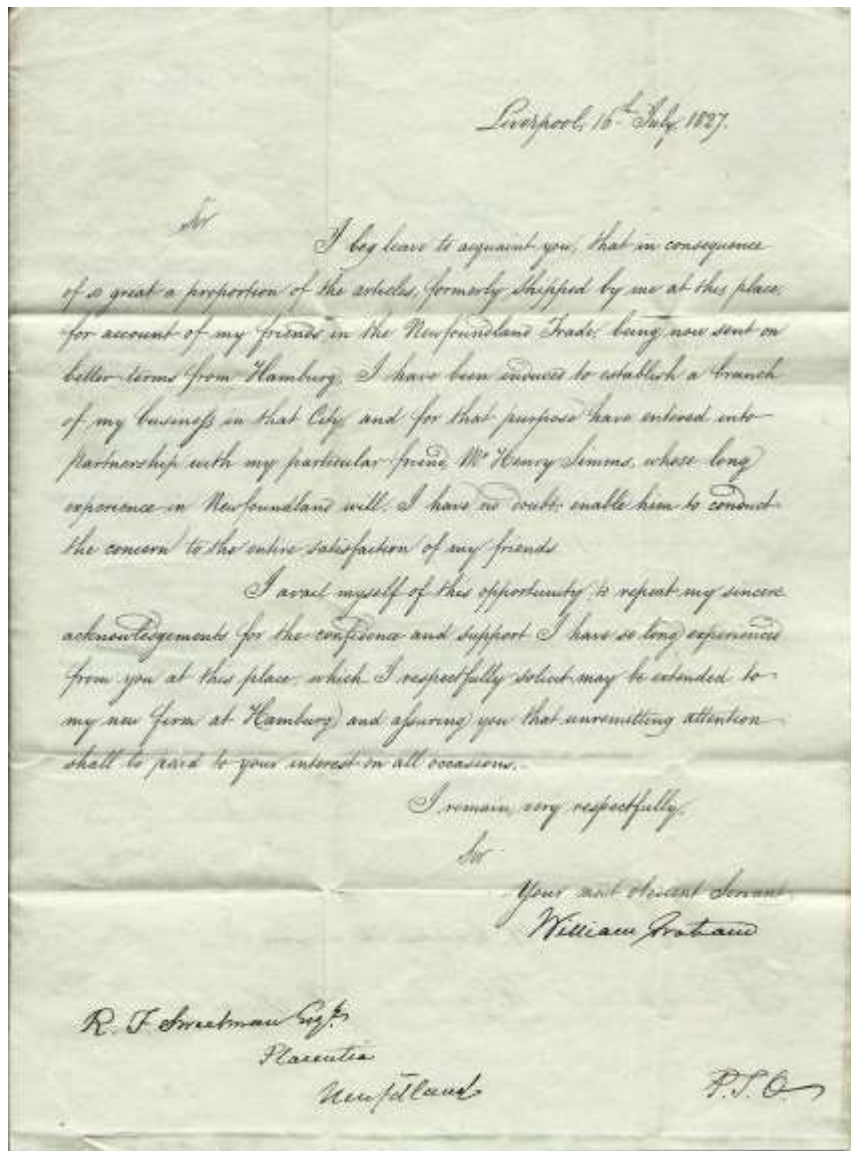 Liverpool, 16th July, 1827.
Sir
I beg leave to acquaint you, that in consequence
of so great a proportion of the articles, formerly shipped by me at this place,
for account of my friends in the Newfoundland Trade, being now sent on
better terms from Hamburg, I have been induced to establish a branch
of my business in that City, and for that purpose have entered into
Partnership with my particular friend, Mr Henry Simms, whose long
experience in Newfoundland will, I have no doubt, enable him to conduct
the concern to the entire satisfaction of my friends
I avail myself of this opportunity, to repeat my sincere
acknowledgements for the confidence and support I have so long experienced
from you at this place, which I respectfully solicit may be extended to
my new firm at Hamburg, and assuring you that unremitting attention
shall be paid to your interest on all occasions,
I remain, very respectfully,
Sir
Your most obedient Servant,
William
R. F. Sweetman Esqr.
Placentia
Newfdland
P.T.O.